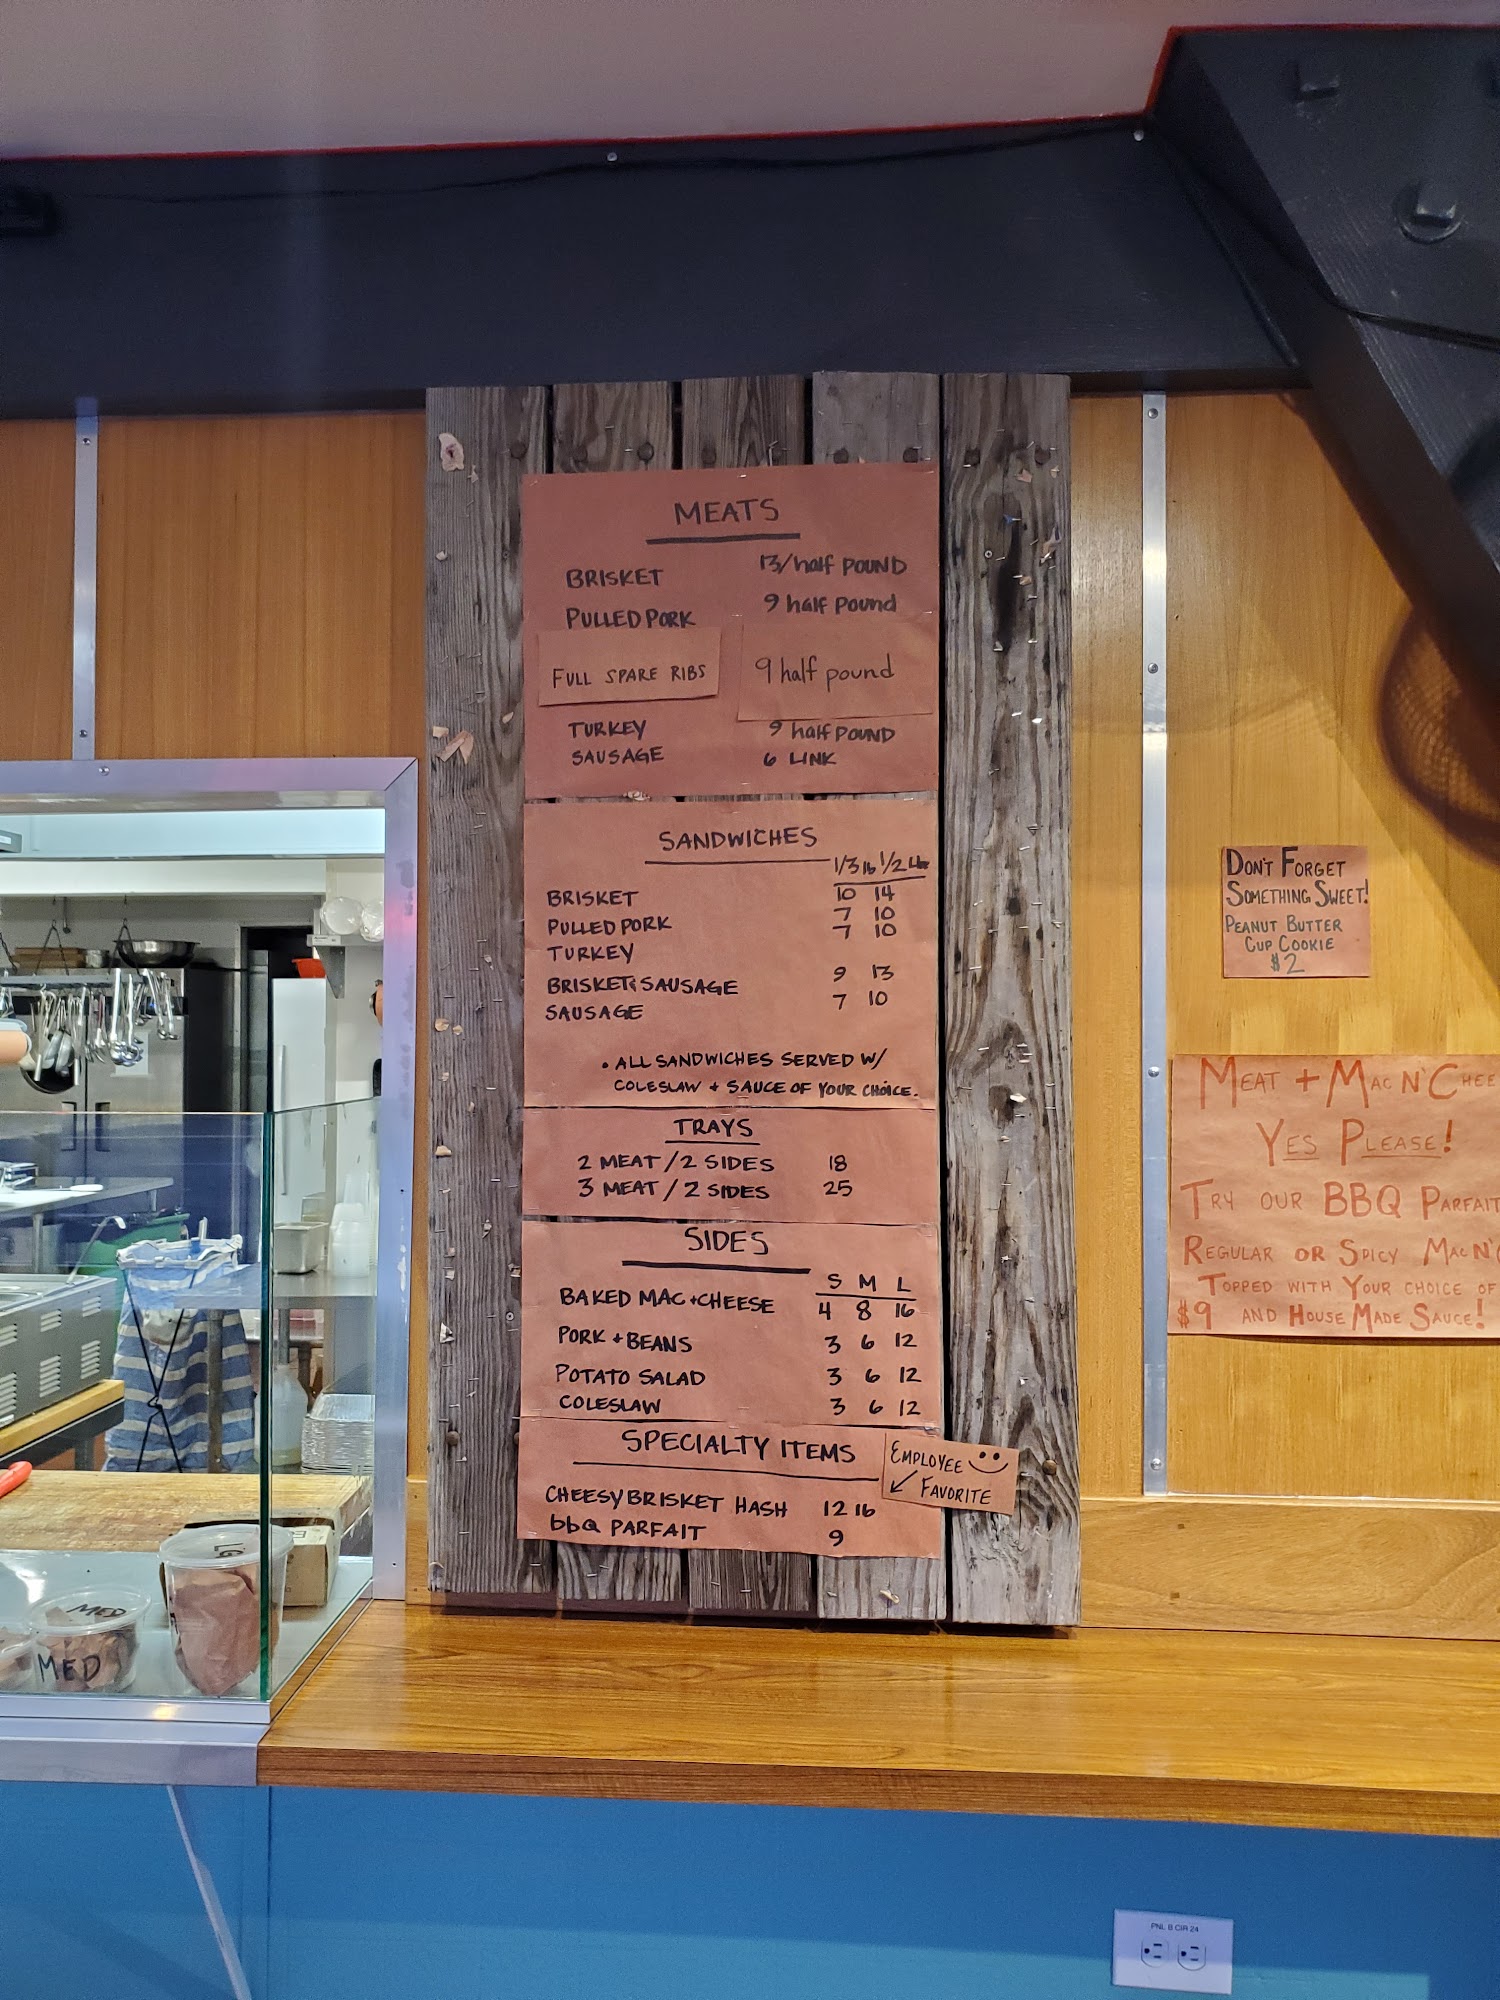 MEATS
BRISKET 13/half POUND
PULLED PORK 9 half Pound
FULL SPARE RIBS 9 half pound
TURKEY 9 half POUND
SAUSAGE 6 LINK
SANDWICHES
1/3 lb 1/2 lb
BRISKET 10 14
PULLED PORK 7 10
TURKEY 7 10
BRISKET & SAUSAGE 9 13
SAUSAGE 7 10
• ALL SANDWICHES SERVED W/
COLESLAW + SAUCE OF YOUR CHOICE.
TRAYS
2 MEAT / 2 SIDES 18
3 MEAT / 2 SIDES 25
SIDES
S M L
BAKED MAC + CHEESE 4 8 16
PORK + BEANS 3 6 12
POTATO SALAD 3 6 12
COLESLAW 3 6 12
SPECIALTY ITEMS
EMPLOYEE
FAVORITE
CHEESY BRISKET HASH 12 16
bbQ PARFAIT 9
DON'T FORGET
SOMETHING SWEET!
PEANUT BUTTER
CUP COOKIE
$2
MEAT + MAC N' CHEE
YES PLEASE!
TRY OUR BBQ PARFAIT
REGULAR OR SPICY MAC N'
TOPPED WITH YOUR CHOICE OF
$9 AND HOUSE MADE SAUCE!
LG
MED
MED
PNL B CIR 24